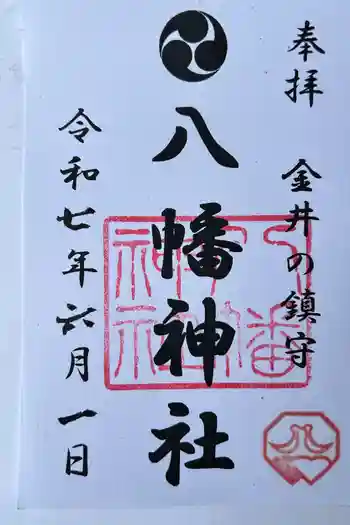 奉拝
金井の鎮守
八幡神社
八幡神社
令和七年六月一日